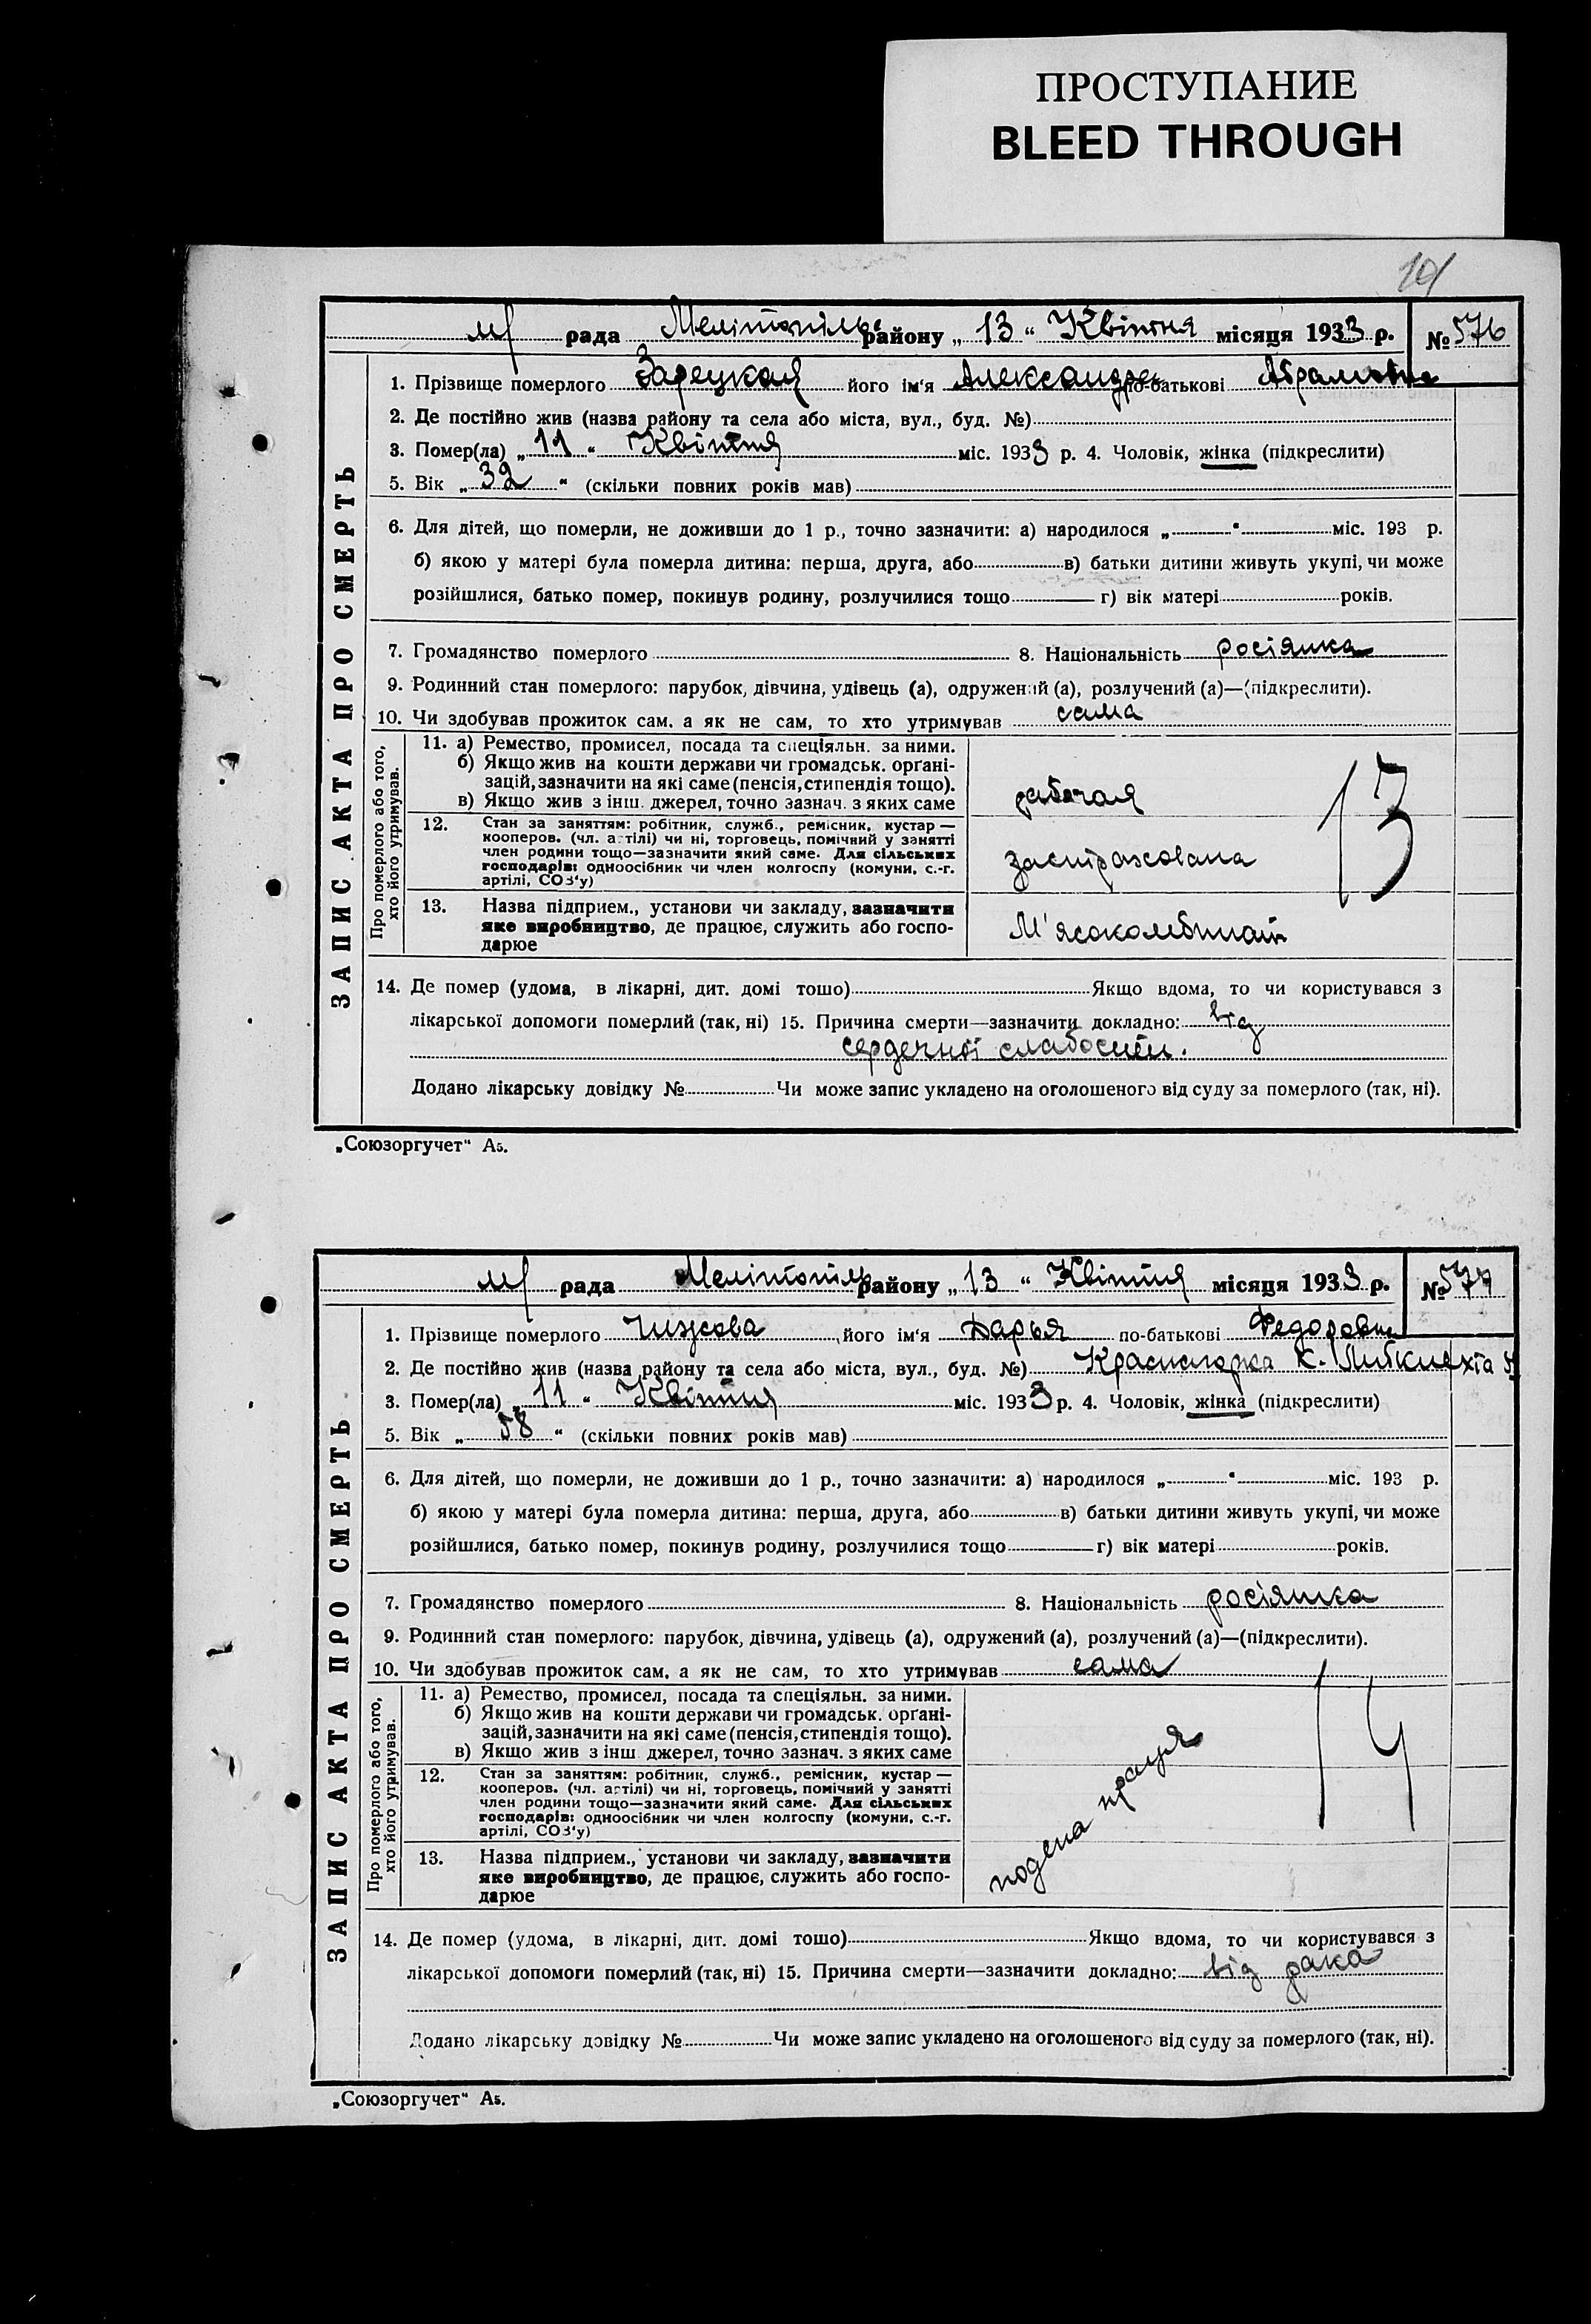 ПРОСТУПАНИЕ
BLEED THROUGH
101
м/ рада Мелітопіль району „ 13 “ Квітня місяця 1933 р. № 576
1. Прізвище померлого Зарецкая його ім'я Александра по-батькові Абрамовна
2. Де постійно жив (назва району та села або міста, вул., буд. №)
3. Помер(ла) „ 11 “ Квітня міс. 1933 р. 4. Чоловік, жінка (підкреслити)
5. Вік „ 32 “ (скільки повних років мав)
6. Для дітей, що померли, не доживши до 1 р., точно зазначити: а) народилося „ “ міс. 193 р.
б) якою у матері була померла дитина: перша, друга, або в) батьки дитини живуть укупі, чи може
розійшлися, батько помер, покинув родину, розлучилися тощо г) вік матері років.
7. Громадянство померлого 8. Національність росіянка
9. Родинний стан померлого: парубок, дівчина, удівець (а), одружений (а), розлучений (а)—(підкреслити).
10. Чи здобував прожиток сам, а як не сам, то хто утримував сама
ЗАПИС АКТА ПРО СМЕРТЬ
Про померлого або того,
хто його утримував.
11. а) Ремество, промисел, посада та спеціяльн. за ними.
б) Якщо жив на кошти держави чи громадськ. орґані-
зацій, зазначити на які саме (пенсія, стипендія тощо).
в) Якщо жив з інш. джерел, точно зазнач. з яких саме
рабочая
13
12. Стан за заняттям: робітник, служб., ремісник, кустар —
кооперов. (чл. артілі) чи ні, торговець, помічний у занятті
член родини тощо—зазначити який саме. Для сільських
господарів: одноосібник чи член колгоспу (комуни, с.-г.
артілі, СОЗ'у)
застрахована
13. Назва підприєм., установи чи закладу, зазначити
яке виробництво, де працює, служить або госпо-
дарює
М'ясокомбінат
14. Де помер (удома, в лікарні, дит. домі тощо) Якщо вдома, то чи користувався з
лікарської допомоги померлий (так, ні) 15. Причина смерти—зазначити докладно: від
сердечної слабости.
Додано лікарську довідку № Чи може запис укладено на оголошеного від суду за померлого (так, ні).
„Союзоргучет“ А5.
м/ рада Мелітопіль району „ 13 “ Квітня місяця 1933 р. № 577
1. Прізвище померлого Чижова його ім'я Дарья по-батькові Федоровна
2. Де постійно жив (назва району та села або міста, вул., буд. №) Красногорка К. Либкнехта
3. Помер(ла) „ 11 “ Квітня міс. 1933 р. 4. Чоловік, жінка (підкреслити)
5. Вік „ 58 “ (скільки повних років мав)
6. Для дітей, що померли, не доживши до 1 р., точно зазначити: а) народилося „ “ міс. 193 р.
б) якою у матері була померла дитина: перша, друга, або в) батьки дитини живуть укупі, чи може
розійшлися, батько помер, покинув родину, розлучилися тощо г) вік матері років.
7. Громадянство померлого 8. Національність росіянка
9. Родинний стан померлого: парубок, дівчина, удівець (а), одружений (а), розлучений (а)—(підкреслити).
10. Чи здобував прожиток сам, а як не сам, то хто утримував сама
ЗАПИС АКТА ПРО СМЕРТЬ
Про померлого або того,
хто його утримував.
11. а) Ремество, промисел, посада та спеціяльн. за ними.
б) Якщо жив на кошти держави чи громадськ. орґані-
зацій, зазначити на які саме (пенсія, стипендія тощо).
в) Якщо жив з інш. джерел, точно зазнач. з яких саме
14
12. Стан за заняттям: робітник, служб., ремісник, кустар —
кооперов. (чл. артілі) чи ні, торговець, помічний у занятті
член родини тощо—зазначити який саме. Для сільських
господарів: одноосібник чи член колгоспу (комуни, с.-г.
артілі, СОЗ'у)
подена праця
13. Назва підприєм., установи чи закладу, зазначити
яке виробництво, де працює, служить або госпо-
дарює
14. Де помер (удома, в лікарні, дит. домі тощо) Якщо вдома, то чи користувався з
лікарської допомоги померлий (так, ні) 15. Причина смерти—зазначити докладно: від рака
Додано лікарську довідку № Чи може запис укладено на оголошеного від суду за померлого (так, ні).
„Союзоргучет“ А5.